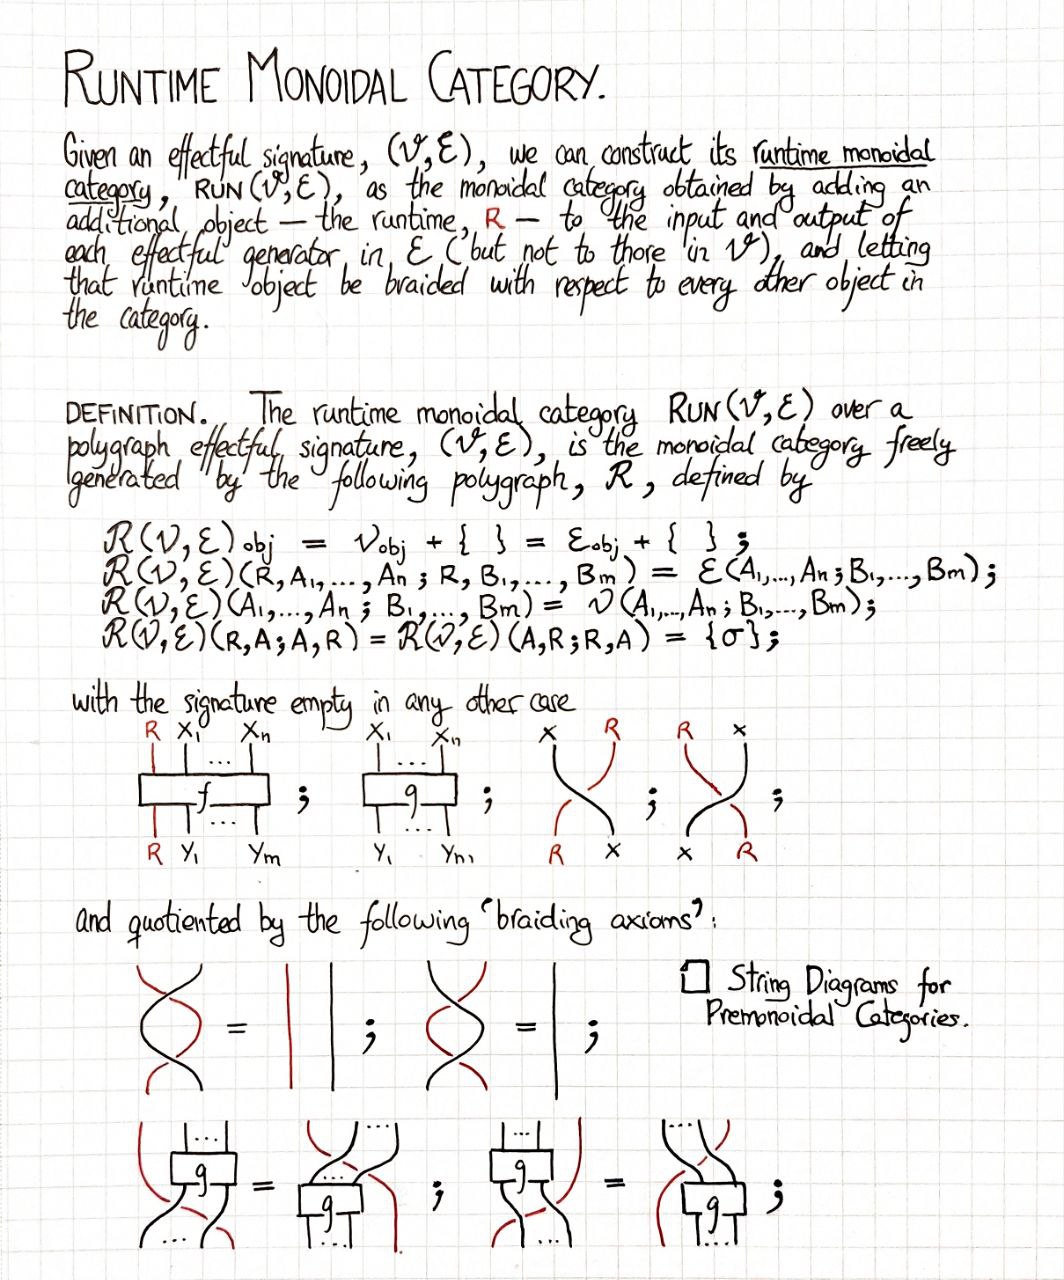 RUNTIME MONOIDAL CATEGORY.
Given an effectful signature, (𝒱,ℰ), we can construct its runtime monoidal
category, RUN(𝒱,ℰ), as the monoidal category obtained by adding an
additional object — the runtime, R — to the input and output of
each effectful generator in ℰ (but not to those in 𝒱), and letting
that runtime object be braided with respect to every other object in
the category.
DEFINITION. The runtime monoidal category RUN(𝒱,ℰ) over a
polygraph effectful signature, (𝒱,ℰ), is the monoidal category freely
generated by the following polygraph, ℛ, defined by
ℛ(𝒱,ℰ)obj = 𝒱obj + { } = ℰobj + { } ;
ℛ(𝒱,ℰ)(R,A₁,...,An ; R,B₁,...,Bm) = ℰ(A₁,...,An;B₁,...,Bm);
ℛ(𝒱,ℰ)(A₁,...,An; B₁,...,Bm) = 𝒱(A₁,...,An;B₁,...,Bm);
ℛ(𝒱,ℰ)(R,A;A,R) = ℛ(𝒱,ℰ)(A,R;R,A) = {σ};
with the signature empty in any other case
R X₁ ... Xn X₁ ... Xn X R R X
f ; g ; ; ;
R Y₁ ... Ym Y₁ ... Ym R X X R
and quotiented by the following "braiding axioms":
= ; = ;
□ String Diagrams for
Premonoidal Categories.
... ... ... ...
g = ... g ; g = g ;
... ... ... ...